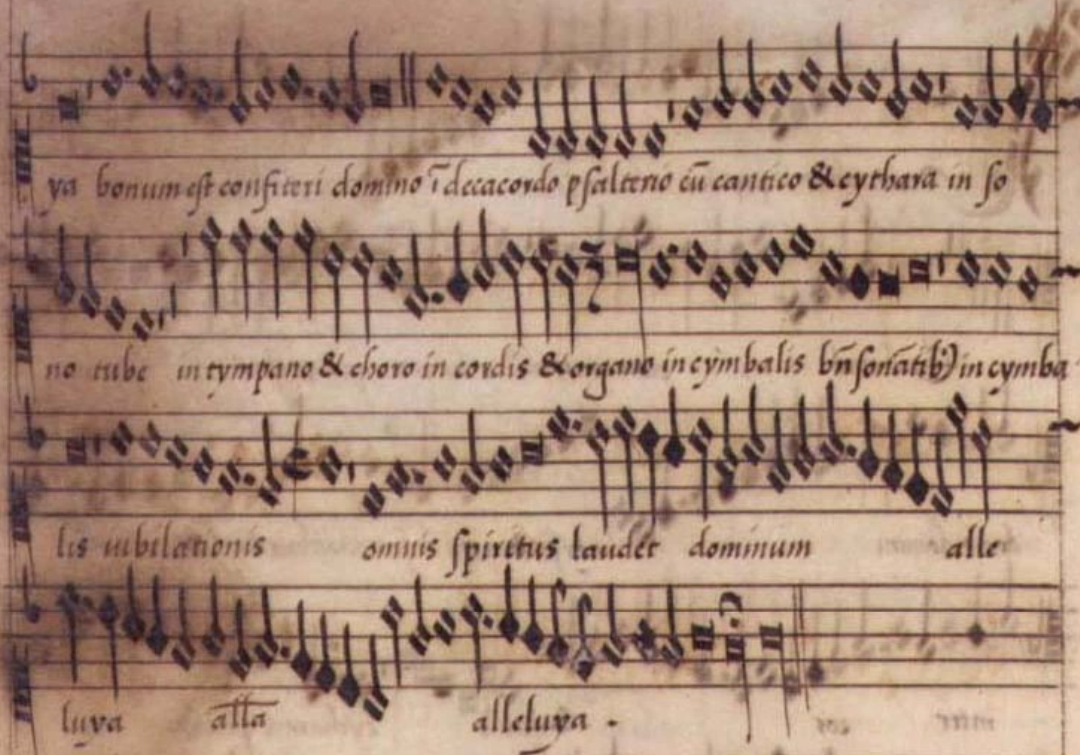 ya bonum est confiteri domino ī decacordo psalterio cū cantico & cythara in so
no tube in tympano & choro in cordis & organo in cymbalis bn̄ sonātib⁹) in cymba
lis iubilationis omnis spiritus laudet dominum alle
luya all̄a alleluya .